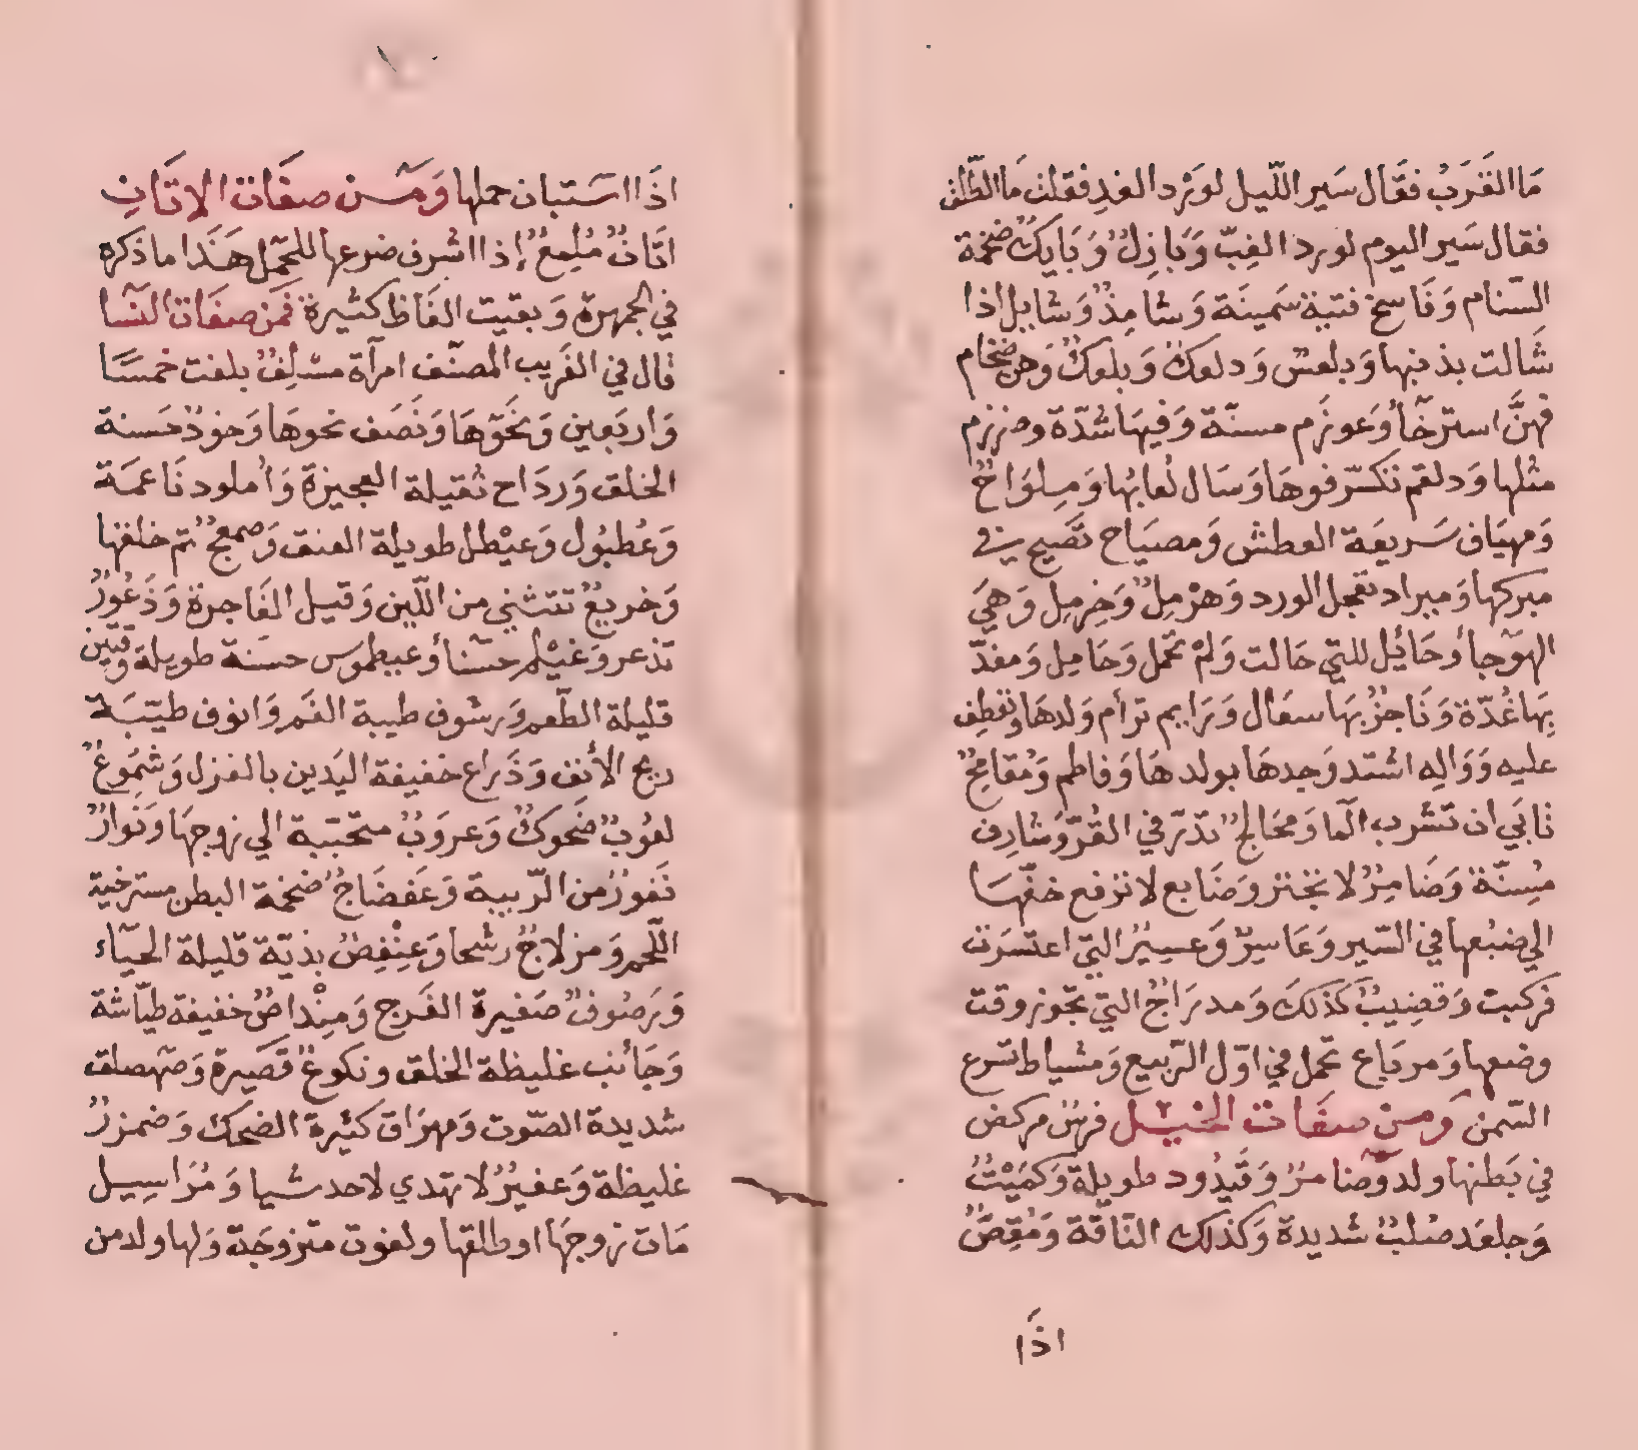 مَا القَرَبُ فقَال سَير اللّيل لوِرْد الغدِ فقلت مَا الطَّلَق
فقال سَير اليوم لورد الغِبّ وَبَازِلٌ وَبَايكٌ ضخمة
السّنام وَفَاسخ فتية سَمينَة وَشامِذٌ وَشايل اذا
شَالت بذنبها وَدلعس وَدلعكٌ وَبلعكٌ وَهن ضخام
فهنَّ استرخآ وَعوزَم مسنّة وَفيهَا شدّة وضرزم
مثلها وَدلقم تكسّر فوهَا وَسَال لُعابُها وَمِلوَاحٌ
وَمهيَاف سَريعَة العطش وَمصيَاح تصَيح في
مبركها وَميراد تعجل الورد وَهرْمِلٌ وَخِرمِل وَهيَ
الهوَجآ وَحَائِل للتي حَالت وَلمْ تحمل وَحَامِل وَمغدّ
بِهَا غُدّة وَنَاحِزٌ بهَا سعَال وَرَايم ترأم وَلدهَا وتعطف
عليه وَوَالِه اشتد وَجدهَا بولدهَا وَفاطم وَمُقامِحٌ
تابَي ان تشرب المآ وَمجَالحٌ تدرّ في القُرّ وَشارِف
مُسِنّة وَضَامِزٌ لا تجتر وَضَابع لا ترفع خفّهَا
الي ضبُعها في السّير وَعَاسِرٌ وَعسيرٌ التي اعتسَرَت
فركبت وَقضِيبٌ كذلكَ وَمدرَاجٌ التي تجوز وقت
وضعها وَمربَاع تحمل في اوّل الرّبيع وَمشياط تسرع
السّمن وَمن صفَات الخيل فرسٌ مركض
في بَطنها ولد وضامرٌ وَقَيدُود طويلة وَكمَيْتٌ
وَجلعَد صُلبٌ شديدة وَكذلك النّاقة وَمُقِصٌّ
اذَا
اذَا استبان حملها وَمن صفَات الاتَانِ
اتَانٌ مُلمِعٌ إذا اشرف ضرعها للحَمل هَذا ما ذكره
في الجمهرة وَبقيت الفَاظ كثيرة فمن صفَات النسَآ
قال في الغَريب المصنّف امرآة مسْلِفٌ بلغت خمسًا
وَاربَعين وَنحوَهَا وَنَصَف نحوهَا وَخودٌ حَسنة
الخلق وَردَاح ثقيلة العجيزة وَأملود نَاعمَة
وَعُطبُول وَعيْطل طويلة العنق وَصمعجٌ تم خلقها
وَخريعٌ تتثني من اللّين وَقيل الفَاجرة وَذَعُورٌ
تذعر وَغيْلم حسنآ وعيطموس حسَنة طويلة وقتين
قليلة الطّعم وَرشوف طيبة الفَم وَانوف طيّبَة
ريح الأنف وَذَراع خفيفة اليَدين بالغزل وَشمُوعٌ
لعُوبٌ ضَحوكٌ وَعروَبٌ متحَبّبة الي زوجهَا وَنَوارٌ
نَفورٌ من الرّيبة وَعَفضَاجٌ ضخمة البطن مسترخية
اللّحم وَمزلاجٌ رشحا وَعِنْفِصٌ بذيّة قليلة الحيَاء
وَرَصُوفٌ صَغيرة الفَرج وَمِنْداصٌ خفيفة طيّاشة
وَجَأنب غليظة الخلق ونكوعٌ قصَيرة وَصَهصلق
شديدة الصّوت وَمهزَاق كثيرة الضحك وَضمزرٌ
غليظة وَعفيرٌ لا تهدي لاحد شيا وَمُرَاسِيل
مَات زوجهَا او طلقها ولفوت متزوجَة وَلها ولد من